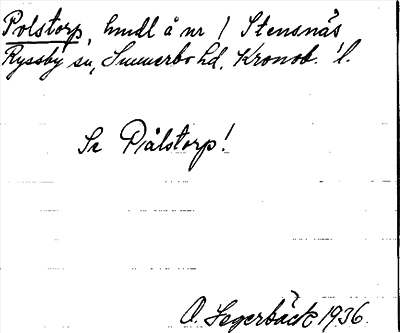 Polstorp, hmdl å nr 1 Stensnäs
Ryssby sn, Sunnerbo hd, Kronob. l.
Se Pålstorp!
O. Segerbäck 1936.